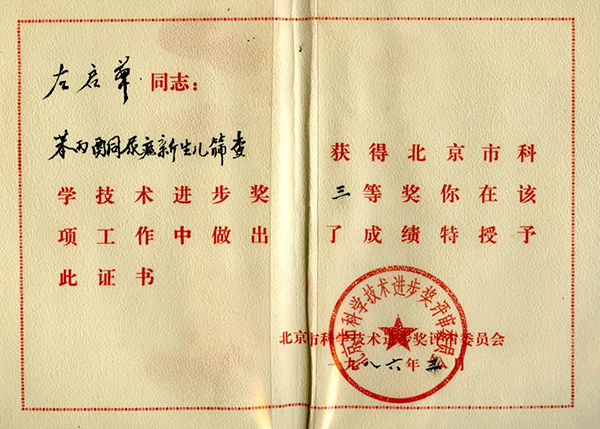 左启华同志：
苯丙酮尿症新生儿筛查 获得北京市科
学技术进步奖 三等奖你在该
项工作中做出了成绩特授予
此证书
北京市科学技术进步奖评审委员会
一九八六年 月
北京市科学技术进步奖评审委员会